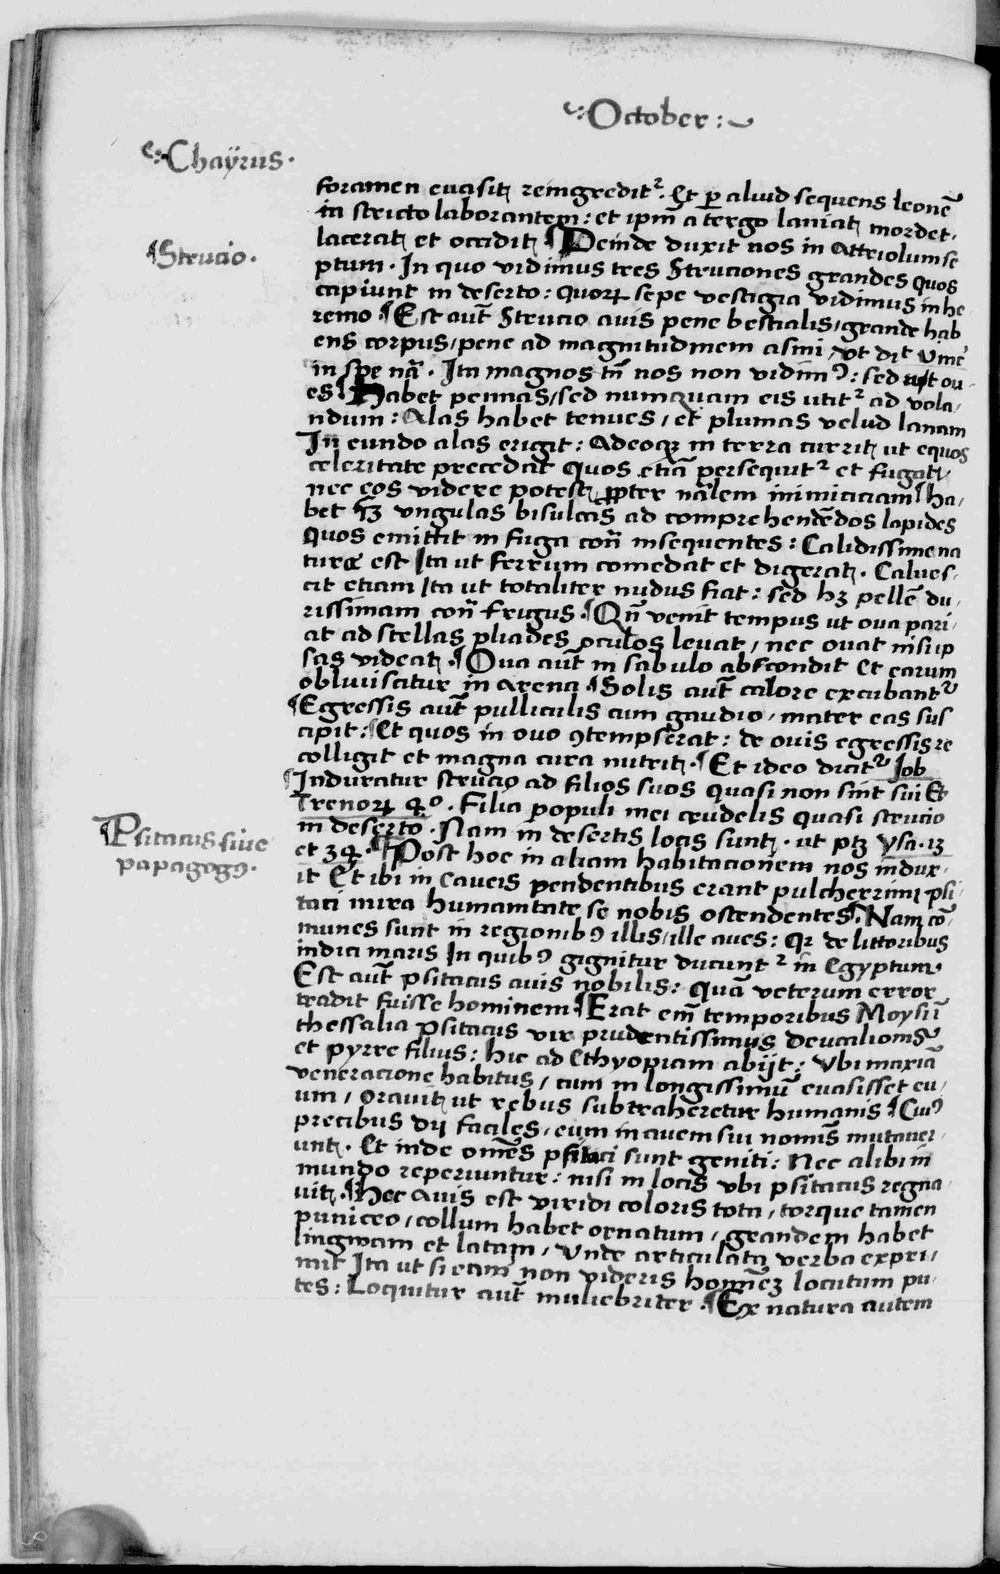 October:
Chaÿrus.
foramen euasit reingredit᷒. Et ꝑ aliud sequens leonē
in stricto laborantem: et ipm̄ a tergo laniat mordet.
lacerat et occidit ¶Deinde duxit nos in Attriolum se
Strucio.
ptum. In quo vidimus tres Struciones grandes quos
capiunt in deserto: quoꝝ sepe vestigia vidimus in he
remo. ¶Est aut̄ Strucio auis pene bestialis/grande hab
ens corpus/pene ad magnitudinem asini/ut dit vinc̄
in spe nā. Ita magnos tn̄ nos non vidimꝰ: sed ou
es ¶Habet pennas/sed numquam eis utit᷒ ad vola/
ndum: Alas habet tenues/et plumas velud lanam
In eundo alas erigit: Adeoqꝫ in terra currit ut equos
celeritate precedat quos etiā persequit᷒ et fugat/
nec eos videre potest ꝓpter nālem inimiciciam ¶ha/
bet ungulas bisulcas ad comprehendēdos lapides
quos emittit in fuga con̄ insequentes: Calidissime na
ture est Ita ut ferrum comedat et digerat. Calues/
cit etiam Ita ut totaliter nudus fiat: sed hꝫ pellē du/
rissimam con̄ frigus. ¶Qn̄ venit tempus ut oua pari/
at ad stellas pliades oculos leuat/nec ouat nisi ip
sas videat. ¶Oua aut̄ in sabulo abscondit Et earum
obliuiscitur in arena. ¶Solis aut̄ calore excubant᷒
¶Egressis aut̄ pulliculis cum gaudio/mater eas sus
cipit: ¶Et quos in ouo ꝯtempserat: de ouis egressis re
colligit et magna cura nutrit. ¶Et ideo dicit᷒ Job
¶Induratur strucio ad filios suos quasi non sint sui Et
Trenoꝝ 4º. Filia populi mei crudelis quasi strucio
in deserto. Nam in desertis locis sunt. ut ptꝫ ysa. 13
Psitacus siue
papagogꝰ.
et 34. ¶Post hoc in aliam habitacionem nos indux/
it Et ibi in Caueis pendentibus erant pulcherrimi psi/
taci mira humanitate se nobis ostendentes. ¶Nam cō/
munes sunt in regionibꝰ illis/ille aues: qꝛ de littoribus
indici maris In quibꝰ gignitur ducunt᷒ in Egyptum.
Est aut̄ psitacus auis nobilis: quā veterum error
tradit fuisse hominem ¶Erat em̄ temporibus Moysi in
thessalia Psitacus vir prudentissimus deucalionis
et pyrre filius: hic ad Ethyopiam abijt: Vbi maxiā
veneracione habitus/cum in longissimū euasisset eu/
um/orauit ut rebus subtraheretur humanis ¶Cuiꝰ
precibus dij faciles/eum in auem sui nomīs mutauer/
unt. Et inde omēs psitaci sunt geniti: Nec alibi in
mundo reperiuntur: nisi in locis vbi psitacus regna/
uit. ¶Hec Auis est viridi coloris tota/torque tamen
puniceo/collum habet ornatum/grandem habet
lingwam et latam/Vnde articulata verba expri/
mit Ita ut si eam non videris hominēꝫ locutum pu/
tes: Loquitur aut̄ muliebriter. ¶Ex natura autem